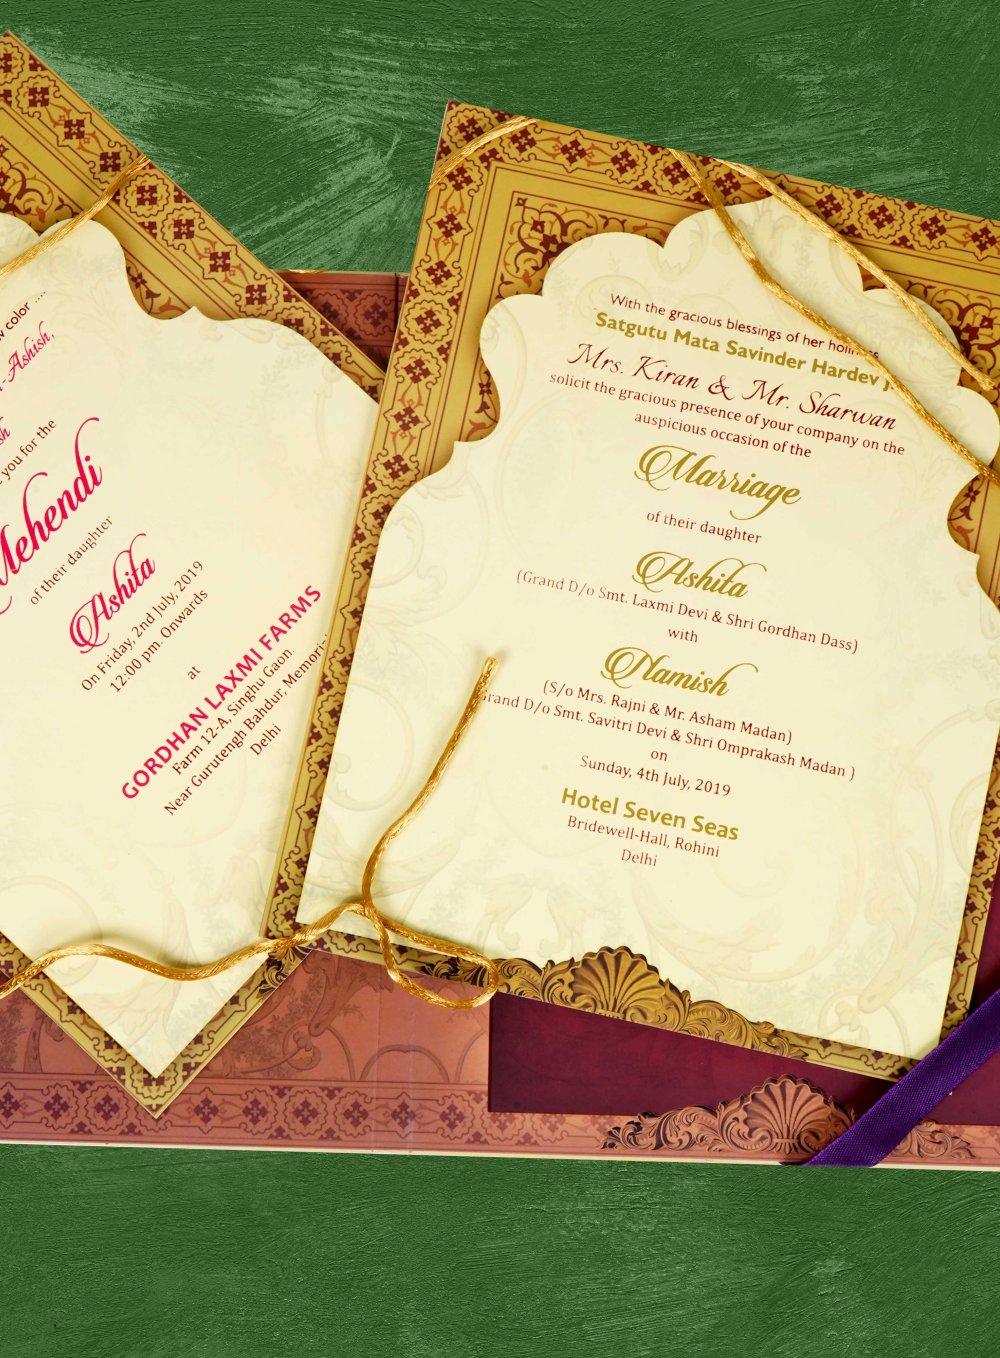 color ....
-Ashish,
sh
you for the
Mehendi
of their daughter
Ashita
On Friday, 2nd July, 2019
12:00 pm. Onwards
at
GORDHAN LAXMI FARMS
Farm 12-A, Singhu Gaon.
Near Gurutengh Bahdur, Memori
Delhi
With the gracious blessings of her holiness
Satgutu Mata Savinder Hardev J
Mrs. Kiran & Mr. Sharwan
solicit the gracious presence of your company on the
auspicious occasion of the
Marriage
of their daughter
Ashita
(Grand D/o Smt. Laxmi Devi & Shri Gordhan Dass)
with
Namish
(S/o Mrs. Rajni & Mr. Asham Madan)
Grand D/o Smt. Savitri Devi & Shri Omprakash Madan )
on
Sunday, 4th July, 2019
Hotel Seven Seas
Bridewell-Hall, Rohini
Delhi